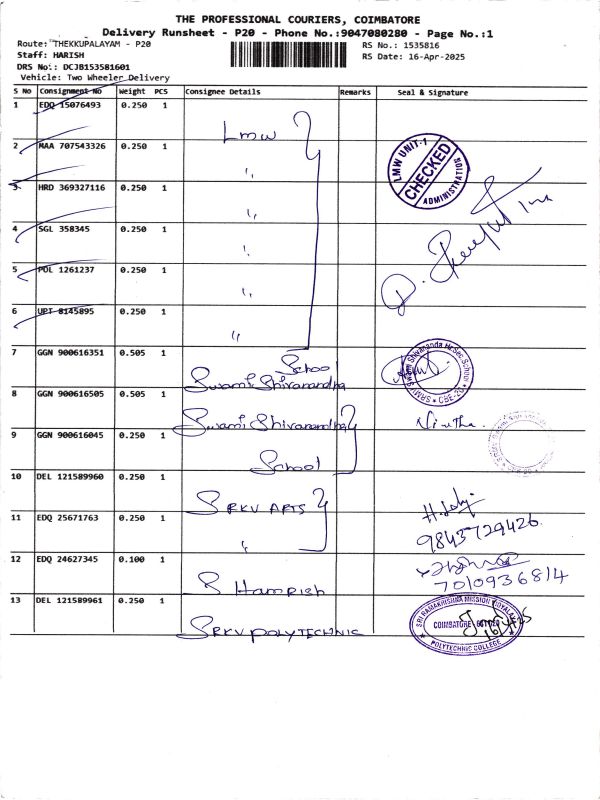 THE PROFESSIONAL COURIERS, COIMBATORE
Delivery Runsheet - P20 - Phone No.:9047080280 - Page No.:1
Route: THEKKUPALAYAM - P20
RS No: 1535816
Staff: HARISH
RS Date: 16-Apr-2025
DRS No:: DCJB153581601
Vehicle: Two Wheeler Delivery
S No Consignment NO Weight PCS Consignee Details Remarks Seal & Signature
1 EDQ 15076493 0.250 1 Lmw
2 MAA 707543326 0.250 1 "
LMW UNIT-1 CHECKED ADMINISTRATION
3 HRD 369327116 0.250 1 "
4 SGL 358345 0.250 1 "
5 POL 1261237 0.250 1 "
6 UPT 8145895 0.250 1 "
7 GGN 900616351 0.505 1 Swami Shivanandha School
8 GGN 900616505 0.505 1 Swami Shivanandha
9 GGN 900616045 0.250 1 School
10 DEL 121589960 0.250 1 SRKV ARTS
11 EDQ 25671763 0.250 1 "
9843729426
12 EDQ 24627345 0.100 1 S Hamrish
7010936814
13 DEL 121589961 0.250 1 SRKV POLYTECHNIC
SRI RAMAKRISHNA MISSION VIDYALAYA
COIMBATORE - 641020
POLYTECHNIC COLLEGE